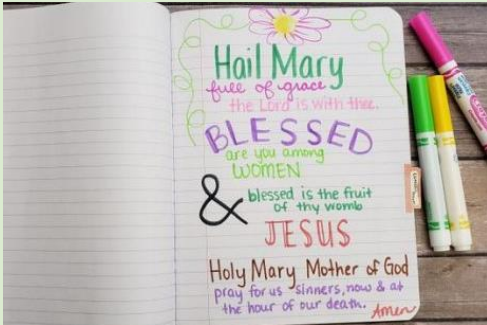 Hail Mary
full of grace
the Lord is with thee.
BLESSED
are you among
WOMEN
&
blessed is the fruit
of thy womb
JESUS
Holy Mary Mother of God
pray for us sinners, now & at
the hour of our death.
Amen